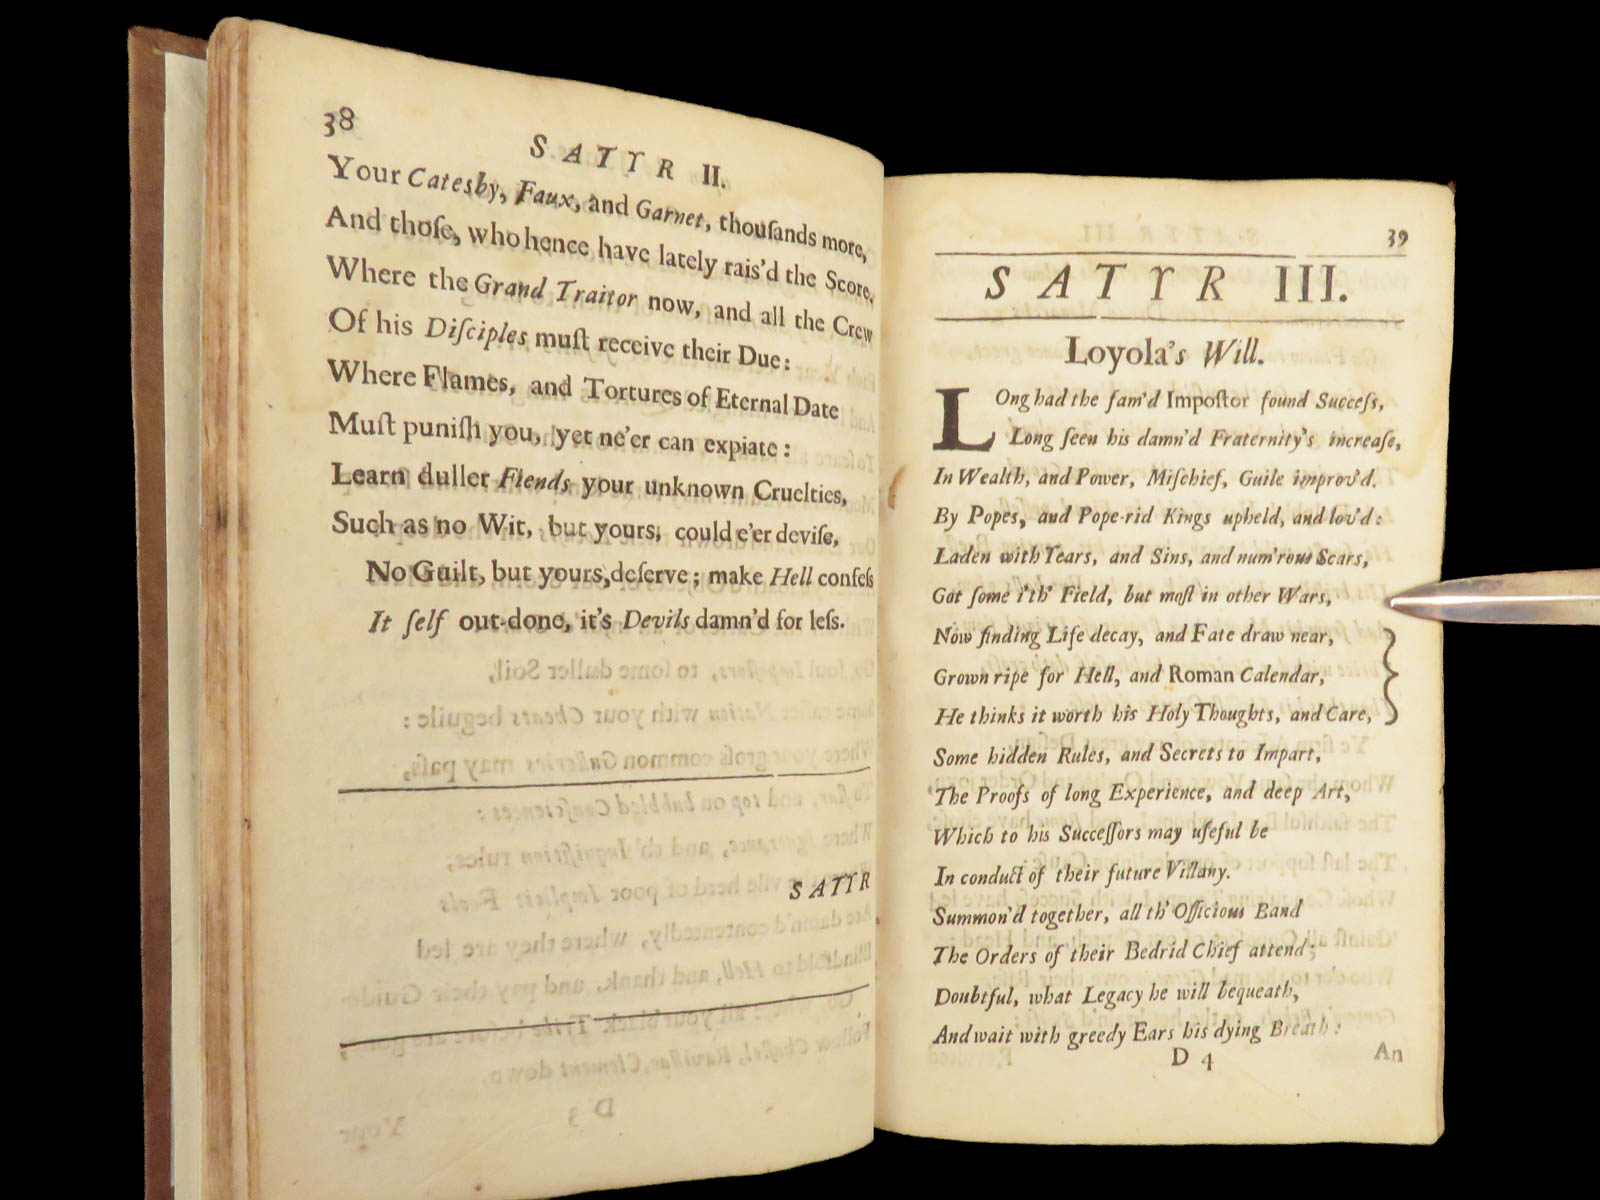 38
SATYR II.
Your Catesby, Faux, and Garnet, thouſands more,
And thoſe, who hence have lately rais'd the Score,
Where the Grand Traitor now, and all the Crew
Of his Diſciples muſt receive their Due:
Where Flames, and Tortures of Eternal Date
Muſt puniſh you, yet ne'er can expiate:
Learn duller Fiends your unknown Cruelties,
Such as no Wit, but yours, could e'er deviſe,
No Guilt, but yours, deſerve; make Hell confeſs
It ſelf out-done, it's Devils damn'd for leſs.
SATYR
39
SATYR III.
Loyola's Will.
LOng had the fam'd Impoſtor found Succeſs,
Long ſeen his damn'd Fraternity's increaſe,
In Wealth, and Power, Miſchief, Guile improv'd.
By Popes, and Pope-rid Kings upheld, and lov'd:
Laden with Years, and Sins, and num'rous Scars,
Got ſome i'th' Field, but moſt in other Wars,
Now finding Life decay, and Fate draw near,
Grown ripe for Hell, and Roman Calendar,
He thinks it worth his Holy Thoughts, and Care,
Some hidden Rules, and Secrets to Impart,
The Proofs of long Experience, and deep Art,
Which to his Succeſſors may uſeful be
In conduct of their future Villany.
Summon'd together, all th' Officious Band
The Orders of their Bedrid Chief attend;
Doubtful, what Legacy he will bequeath,
And wait with greedy Ears his dying Breath:
D 4
An